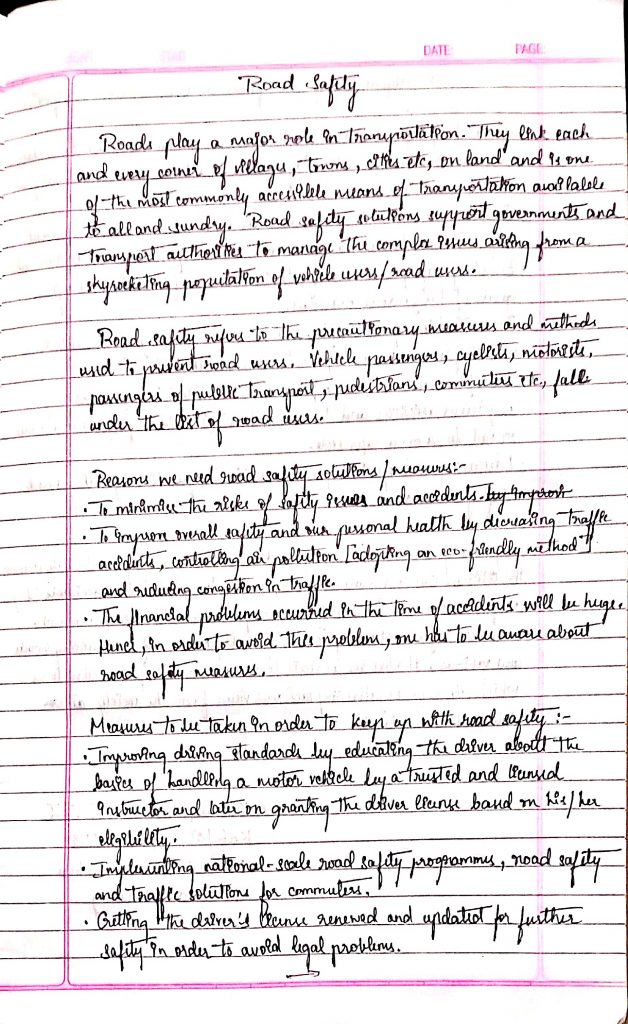 DATE: PAGE:
Road Safety
Roads play a major role in transportation. They link each
and every corner of villages, towns, cities etc, on land and is one
of the most commonly accessible means of transportation available
to all and sundry. Road safety solutions support governments and
transport authorities to manage the complex issues arising from a
skyrocketing population of vehicle users/road users.
Road safety refers to the precautionary measures and methods
used to prevent road users. Vehicle passengers, cyclists, motorists,
passengers of public transport, pedestrians, commuters etc, falls
under the list of road users.
Reasons we need road safety solutions/measures:-
• To minimise the risks of safety issues and accidents. by improvi
• To improve overall safety and our personal health by decreasing traffic
accidents, controlling air pollution [adopting an eco-friendly method]
and reducing congestion in traffic.
• The financial problems occurred in the time of accidents will be huge.
Hence, in order to avoid this problem, one has to be aware about
road safety measures.
Measures to be taken in order to keep up with road safety:-
• Improving driving standards by educating the driver about the
basics of handling a motor vehicle by a trusted and licensed
instructor and later on granting the driver license based on his/her
eligibility.
• Implementing national-scale road safety programmes, road safety
and traffic solutions for commuters.
• Getting the driver's license renewed and updated for further
safety in order to avoid legal problems.